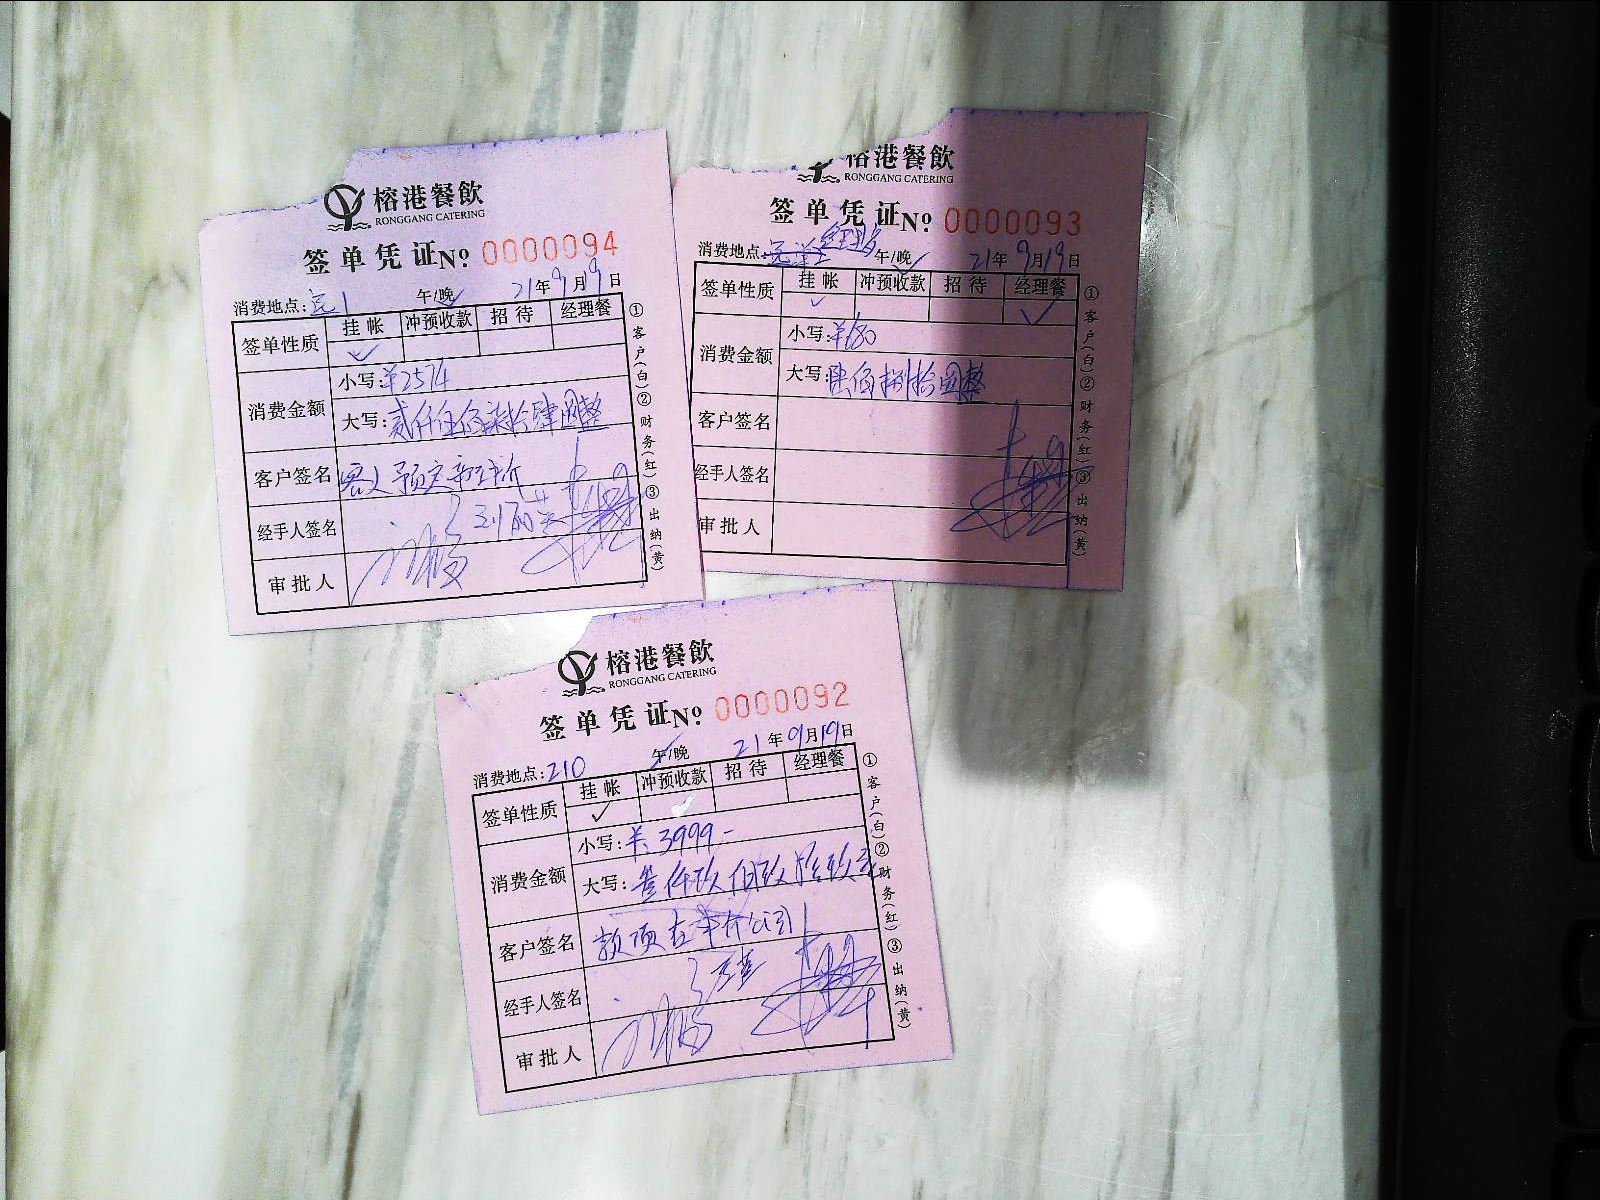 榕港餐飲
RONGGANG CATERING
签单凭证 No. 0000094
消费地点: 午/晚 21年9月19日
签单性质 挂帐 冲预收款 招待 经理餐
✓
消费金额
小写:¥2574
大写:贰仟伍佰柒拾肆圆整
客户签名 客人预定
经手人签名
审批人
①客户(白)②财务(红)③出纳(黄)
榕港餐飲
RONGGANG CATERING
签单凭证 No. 0000093
消费地点: 午/晚 21年9月19日
签单性质 挂帐 冲预收款 招待 经理餐
✓ ✓
消费金额
小写:¥680
大写:陆佰捌拾圆整
客户签名
经手人签名
审批人
①客户(白)②财务(红)③出纳(黄)
榕港餐飲
RONGGANG CATERING
签单凭证 No. 0000092
消费地点:210 午/晚 21年9月19日
签单性质 挂帐 冲预收款 招待 经理餐
✓
消费金额
小写:¥3999-
大写:叁仟玖佰玖拾玖元
客户签名 款项在
经手人签名
审批人
①客户(白)②财务(红)③出纳(黄)